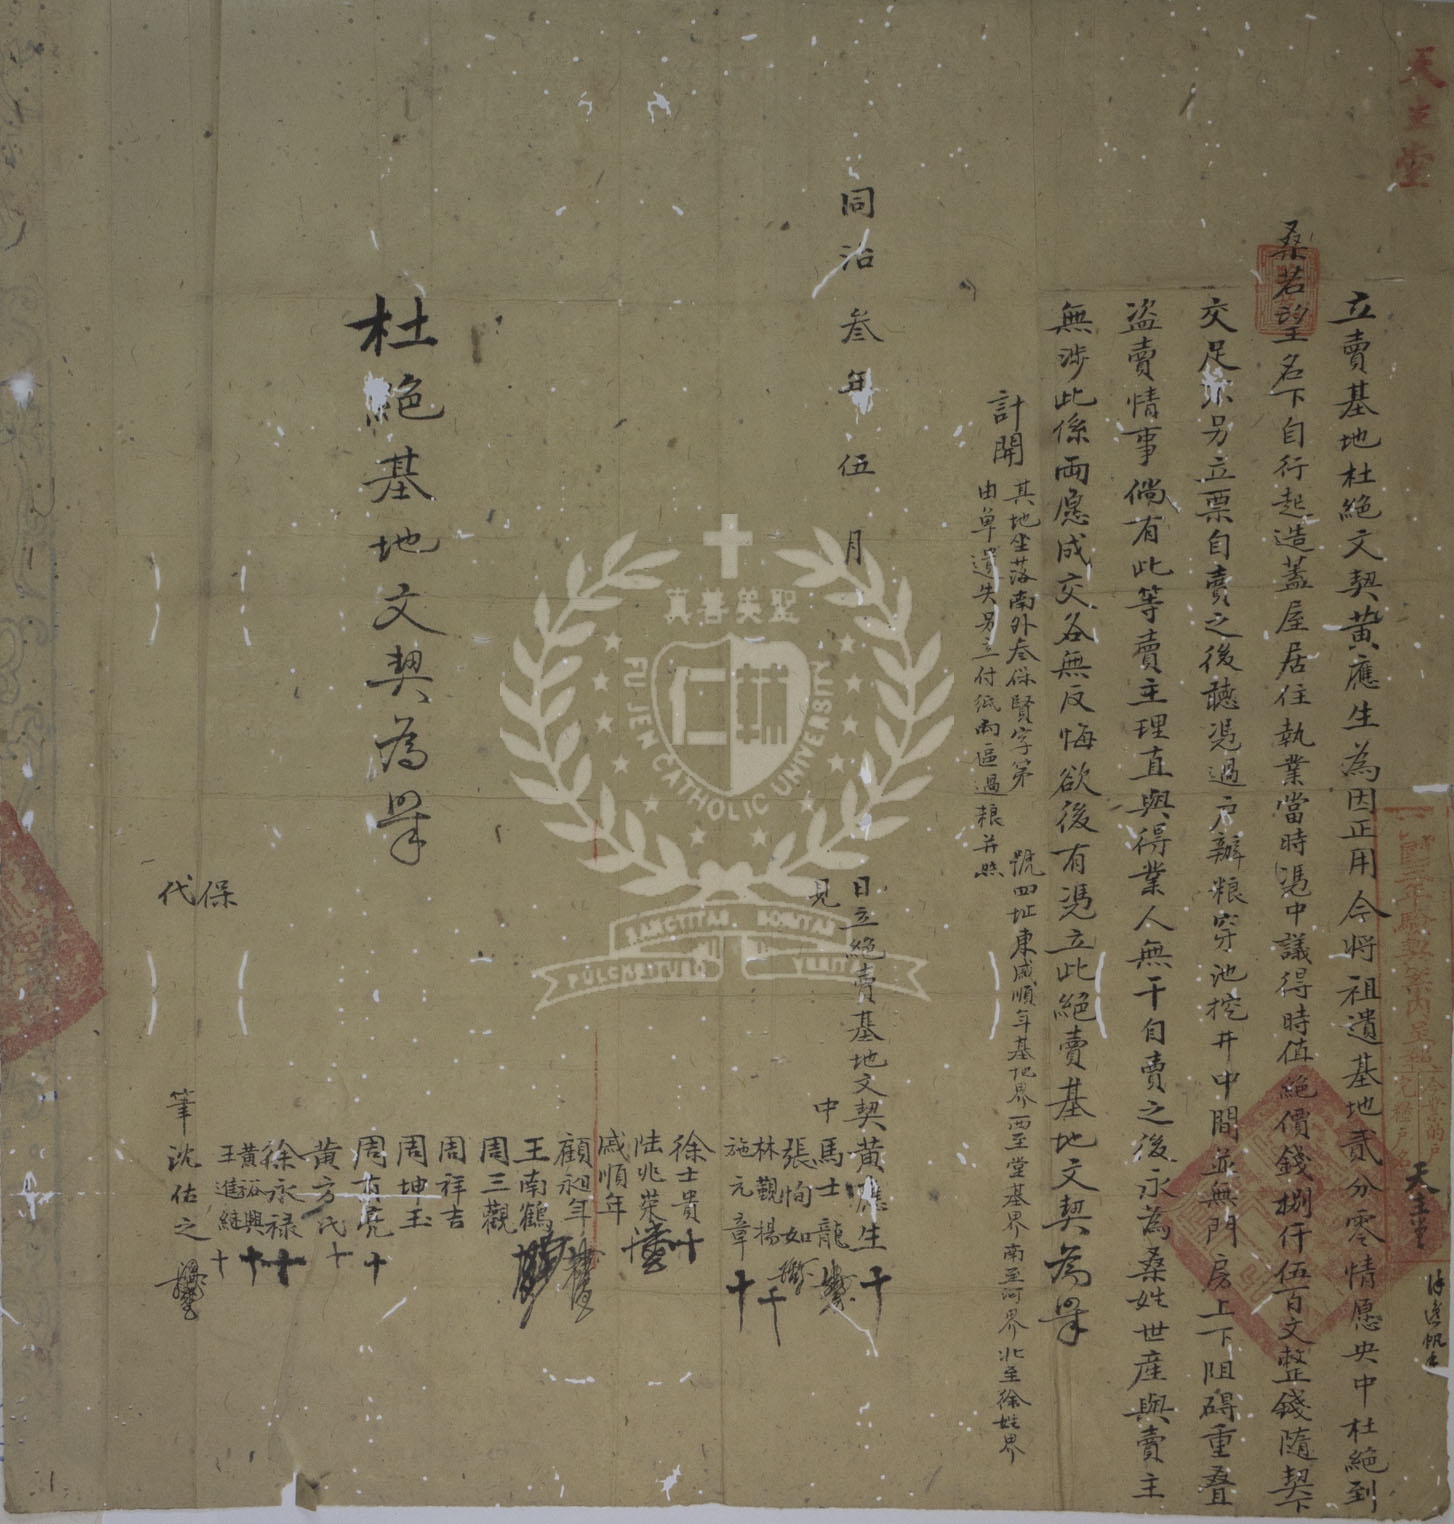 天主堂
立賣基地杜絕文契黄應生為因正用今将祖遺基地貳分零情愿央中杜絕到
桑若望名下自行起造蓋屋居住執業當時憑中議得時值絕價錢捌仟伍百文整錢隨契下
交足不另立票自賣之後聽憑過户辦粮穿池挖井中間並無門房上下阻碍重叠
盗賣情事倘有此等賣主理直與得業人無干自賣之後永為桑姓世産與賣主
無涉此係両愿成交各無反悔欲後有憑立此絕賣基地文契為㨿
計開
其地坐落南外叁保賢字第 號四址東戚順年基地界西至堂基界南至河界北至徐姓界
由单遺失另立付紙両區過粮并照
同治叁年伍月 日立絕賣基地文契黄應生 十
見 中 馬士龍
張恂如
林觀楊 十
施元章 十
徐士貴 十
陆兆荣
戚順年
顧永年
王南鶴
周三觀
周祥吉
周坤玉
周 亮 十
黄方氏 十
保 徐永禄 十
黄裕興 十
王進 十
代 筆 沈佑之
杜絕基地文契為㨿
天主堂
真善美聖
仁
FU JEN CATHOLIC UNIVERSITY
SANCTITAS BONITAS
PULCHRITUDO VERITAS